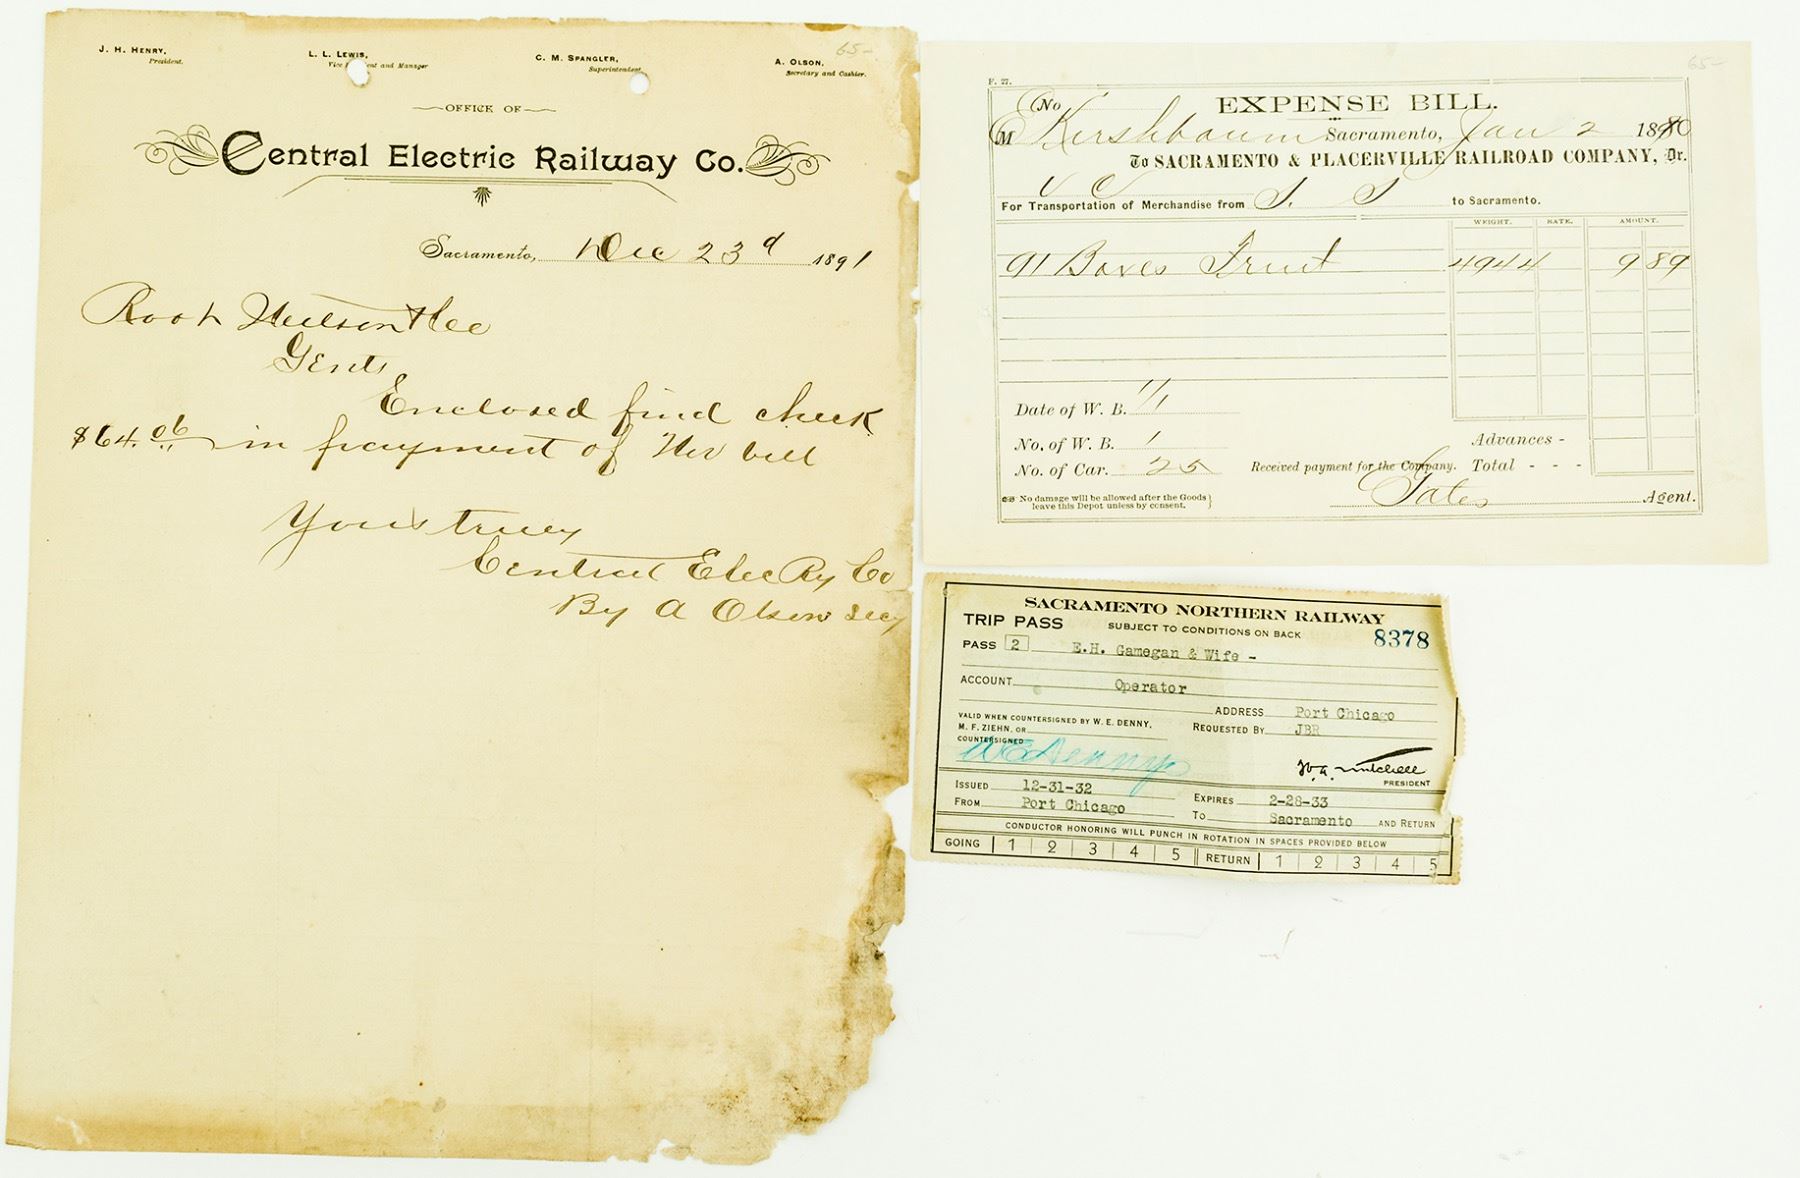 65-
J. H. HENRY,
President.
L. L. LEWIS,
Vice President and Manager
C. M. SPANGLER,
Superintendent,
A. OLSON,
Secretary and Cashier.
OFFICE OF
Central Electric Railway Co.
Sacramento, Dec 23d 1891
Root Neilson & Co
Gents
Enclosed find check
$64.06 in payment of Nov bill
Yours truly
Central Elec Ry Co
By A Olson Secy
65-
F. 27.
No
EXPENSE BILL.
M E Kirshbaum Sacramento, Jan 2 1880
To SACRAMENTO & PLACERVILLE RAILROAD COMPANY, Dr.
For Transportation of Merchandise from S. S to Sacramento.
WEIGHT. RATE. AMOUNT.
91 Boxes Fruit 4944 9 89
Date of W. B. 1/1
No. of W. B. 1
No. of Car. 25
Advances -
Received payment for the Company. Total - - -
No damage will be allowed after the Goods
leave this Depot unless by consent.
Agent.
SACRAMENTO NORTHERN RAILWAY
TRIP PASS SUBJECT TO CONDITIONS ON BACK 8378
PASS 2 E.H. Gamegan & Wife -
ACCOUNT Operator
ADDRESS Port Chicago
VALID WHEN COUNTERSIGNED BY W. E. DENNY,
M. F. ZIEHN, OR
REQUESTED BY JBR
COUNTERSIGNED W E Denny
W. A. Mitchell
PRESIDENT
ISSUED 12-31-32 EXPIRES 2-28-33
FROM Port Chicago TO Sacramento AND RETURN
CONDUCTOR HONORING WILL PUNCH IN ROTATION IN SPACES PROVIDED BELOW
GOING 1 2 3 4 5 RETURN 1 2 3 4 5